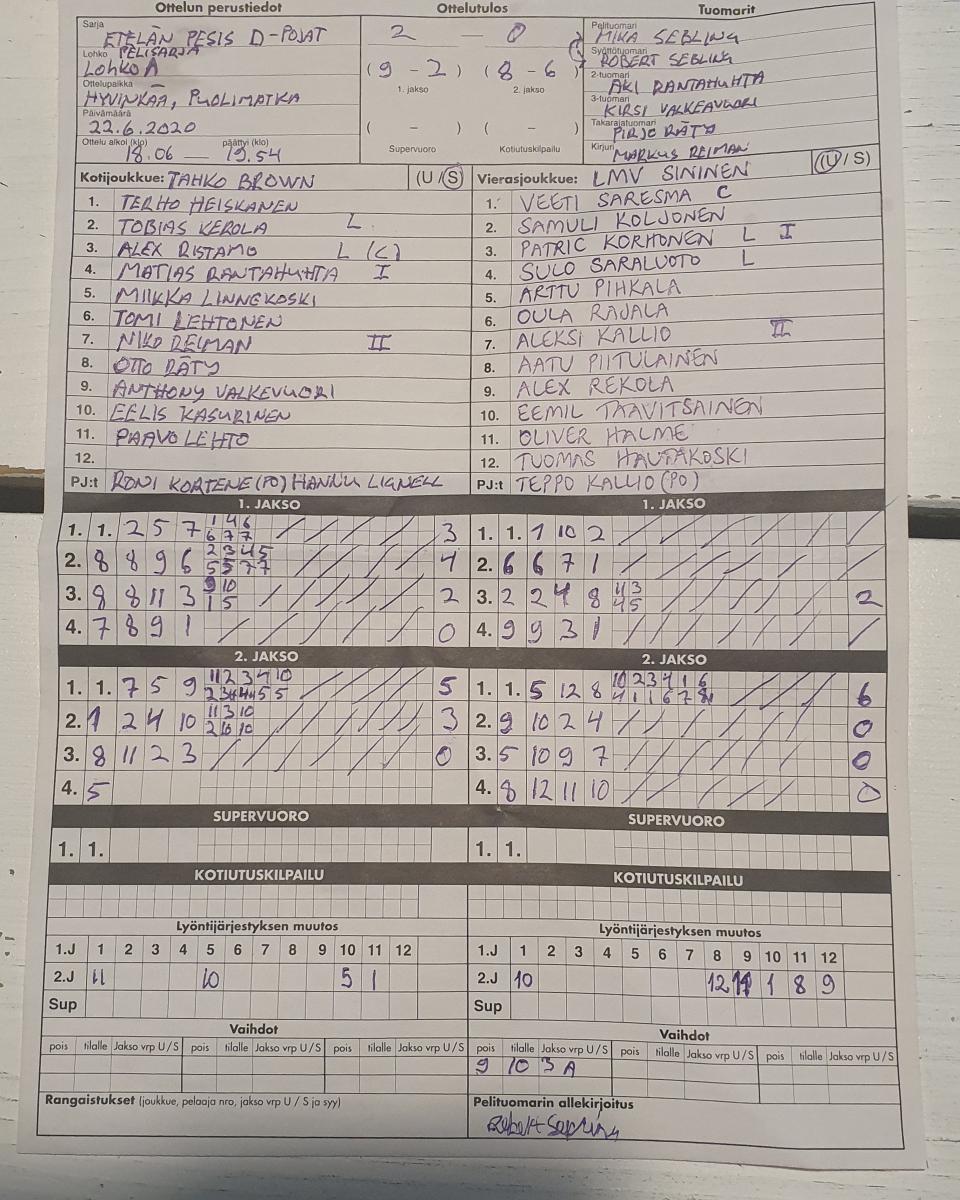 Ottelun perustiedot
Ottelutulos
Tuomarit
Sarja ETELÄN PESIS D-POJAT
Lohko PELISARJA
LOHKO A
Ottelupaikka
HYVINKÄÄ, PUOLIMATKA
Päivämäärä
22.6.2020
Ottelu alkoi (klo) päättyi (klo)
18.06 — 19.54
2 — 0
(9 - 2) (8 - 6)
1. jakso 2. jakso
( - ) ( - )
Supervuoro Kotiutuskilpailu
Pelituomari MIKA SEBLING
Syöttötuomari ROBERT SEBLING
2-tuomari AKI RANTAHUHTA
3-tuomari KIRSI VALKEAVUORI
Takarajatuomari PIRJO RÄTY
Kirjuri MARKUS REIMAN
Kotijoukkue: TAHKO BROWN (U / S)
1. TERHO HEISKANEN
2. TOBIAS KEROLA L
3. ALEX RISTAMO L (C)
4. MATIAS RANTAHUHTA I
5. MIIKKA LINNEKOSKI
6. TOMI LEHTONEN
7. NIKO REIMAN II
8. OTTO RÄTY
9. ANTHONY VALKEVUORI
10. EELIS KASURINEN
11. PAAVO LEHTO
12.
PJ:t RONI KORTENE (PO) HANNU LIGNELL
Vierasjoukkue: LMV SININEN (U / S)
1. VEETI SARESMA C
2. SAMULI KOLJONEN
3. PATRIC KORHONEN L I
4. SULO SARALUOTO L
5. ARTTU PIHKALA
6. OULA RAJALA
7. ALEKSI KALLIO II
8. AATU PIITULAINEN
9. ALEX REKOLA
10. EEMIL TAAVITSAINEN
11. OLIVER HALME
12. TUOMAS HAUTAKOSKI
PJ:t TEPPO KALLIO (PO)
1. JAKSO
1. 1. 2 5 7 1 4 6 / 6 7 7 3
2. 8 8 9 6 2 3 4 5 / 5 5 7 7 4
3. 8 8 11 3 9 10 / 1 5 2
4. 7 8 9 1 0
1. JAKSO
1. 1. 1 10 2
2. 6 6 7 1
3. 2 2 4 8 11 3 / 4 5 2
4. 9 9 3 1
2. JAKSO
1. 1. 7 5 9 11 2 3 4 10 5
2. 1 2 4 10 11 3 10 / 2 10 10 3
3. 8 11 2 3 0
4. 5
2. JAKSO
1. 1. 5 12 8 10 2 3 4 1 6 / 4 1 1 6 7 8 6
2. 9 10 2 4 0
3. 5 10 9 7 0
4. 8 12 11 10 0
SUPERVUORO
1. 1.
SUPERVUORO
1. 1.
KOTIUTUSKILPAILU
KOTIUTUSKILPAILU
Lyöntijärjestyksen muutos
1.J 1 2 3 4 5 6 7 8 9 10 11 12
2.J 11 10 5 1
Sup
Lyöntijärjestyksen muutos
1.J 1 2 3 4 5 6 7 8 9 10 11 12
2.J 10 12 11 1 8 9
Sup
Vaihdot
pois tilalle Jakso vrp U / S pois tilalle Jakso vrp U / S pois tilalle Jakso vrp U / S
Vaihdot
pois tilalle Jakso vrp U / S pois tilalle Jakso vrp U / S pois tilalle Jakso vrp U / S
9 10 3 A
Rangaistukset (joukkue, pelaaja nro, jakso vrp U / S ja syy)
Pelituomarin allekirjoitus